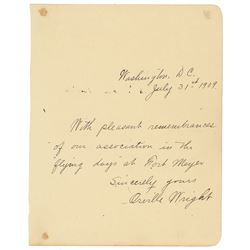 Washington, D.C.
July 31st 1909.
With pleasant remembrances
of our association in the
flying days at Fort Meyer
Sincerely yours
Orville Wright